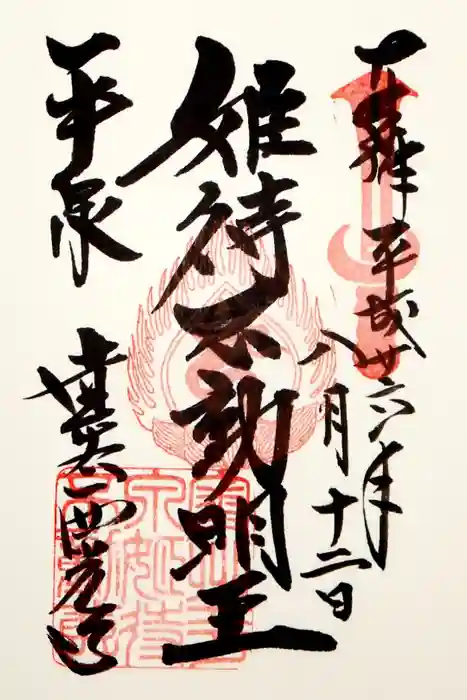 奉拝 平成廿六年
八月十二日
姫待不動明王
平泉
達谷西光寺